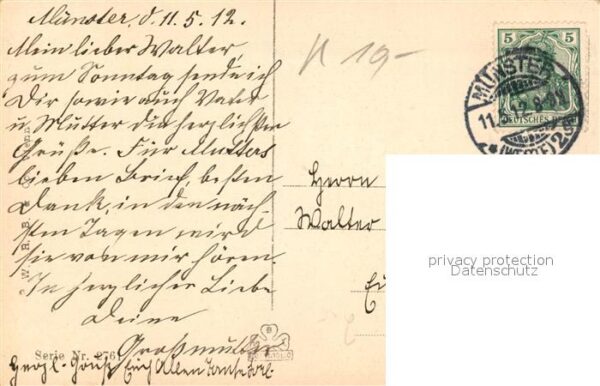 Münster, d. 11.5.12.
Mein lieber Walter
zum Sonntag sende ich
Dir sowie auch Vater
u. Mutter die herzlichsten
Grüße. Für Mutters
lieben Brief, besten
Dank, in den näch-
sten Tagen wird
sie von mir hören.
In herzlicher Liebe
Deine
Großmutter
Herzl. Gruß Euch Allen
Serie Nr. 2761
N 19-
5 5
DEUTSCHES
MÜNSTER
11.5.12.8-9N
*(WESTF.)2
Herrn
Walter
privacy protection
Datenschutz